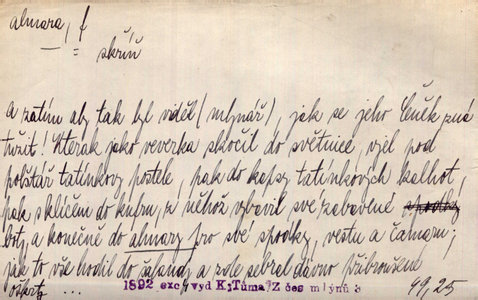 almara, f
skříň
a zatím aby tak byl viděl (mlynář), jak se jeho Čeněk zná
tužit! Kterak jako veverka skočil do světnice, vjel pod
polštář tatínkovy postele, pak do kapsy tatínkových kalhot,
pak s klíčem do kufru, z něhož vybavil své zabavené spodky
boty, a konečně do almary pro své spodky, vestu a čamaru;
jak to vše hodil do a zole sebral dávno
1892 exc. vyd K. Tůma, Z čes mlýnů 3
99, 25